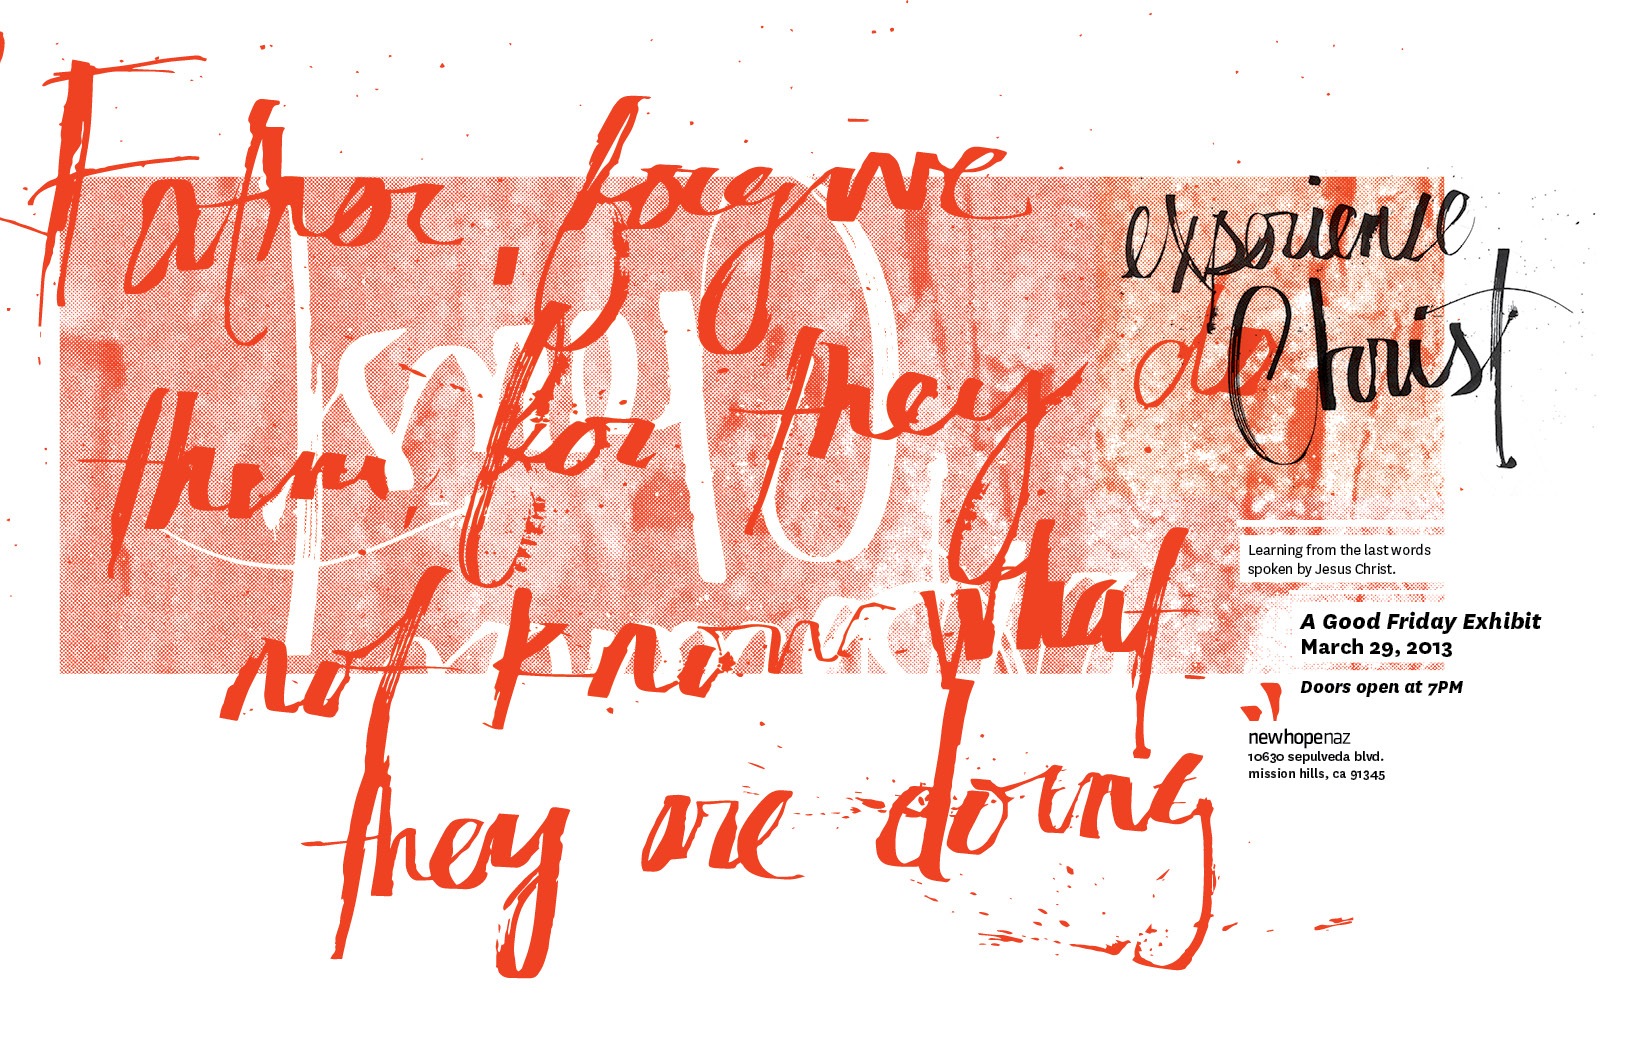 Father, forgive
them, for they do
not know what
they are doing
experience
Christ
Learning from the last words
spoken by Jesus Christ.
A Good Friday Exhibit
March 29, 2013
Doors open at 7PM
newhopenaz
10630 sepulveda blvd.
mission hills, ca 91345